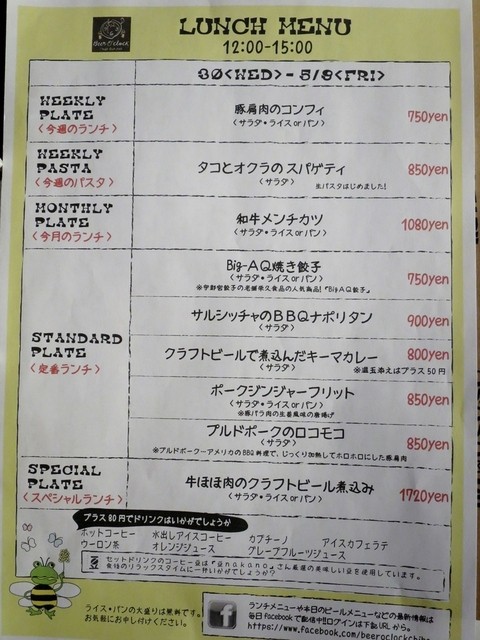 Beer O'clock
LUNCH MENU
12:00-15:00
30<WED> - 5/8<FRI>
WEEKLY
PLATE
<今週のランチ>
豚肩肉のコンフィ
(サラダ・ライス or パン)
750yen
WEEKLY
PASTA
<今週のパスタ>
タコとオクラのスパゲティ
(サラダ)
生パスタはじめました!
850yen
MONTHLY
PLATE
<今月のランチ>
和牛メンチカツ
(サラダ・ライス or パン)
1080yen
STANDARD
PLATE
<定番ランチ>
Big-AQ焼き餃子
(サラダ・ライス or パン)
※宇都宮餃子の老舗幸久食品の人気商品!『Big AQ餃子』
750yen
サルシッチャのBBQナポリタン
(サラダ)
900yen
クラフトビールで煮込んだキーマカレー
(サラダ)
※温玉添えはプラス50円
800yen
ポークジンジャーフリット
(サラダ・ライス or パン)
※豚バラ肉の生姜風味の唐揚げ
850yen
プルドポークのロコモコ
(サラダ)
※プルドポークーアメリカのBBQ料理で、じっくり加熱してホロホロにした豚肩肉
850yen
SPECIAL
PLATE
<スペシャルランチ>
牛ほほ肉のクラフトビール煮込み
(サラダ・ライス or パン)
1720yen
プラス80円でドリンクはいかがでしょうか
ホットコーヒー 水出しアイスコーヒー カプチーノ アイスカフェラテ
ウーロン茶 オレンジジュース グレープフルーツジュース
セットドリンクのコーヒー豆は『豆nakano』さん厳選の美味しい豆を使用しています。
食後のリラックスタイムに一杯いかがでしょうか?
ライス・パンの大盛りは無料です。
お気軽にお申し付けください。
f
ランチメニューや本日のビールメニューなどの最新情報は
毎日facebookで配信中!!ログインは下記URLから。
https://www.facebook.com/beeroclockchiba